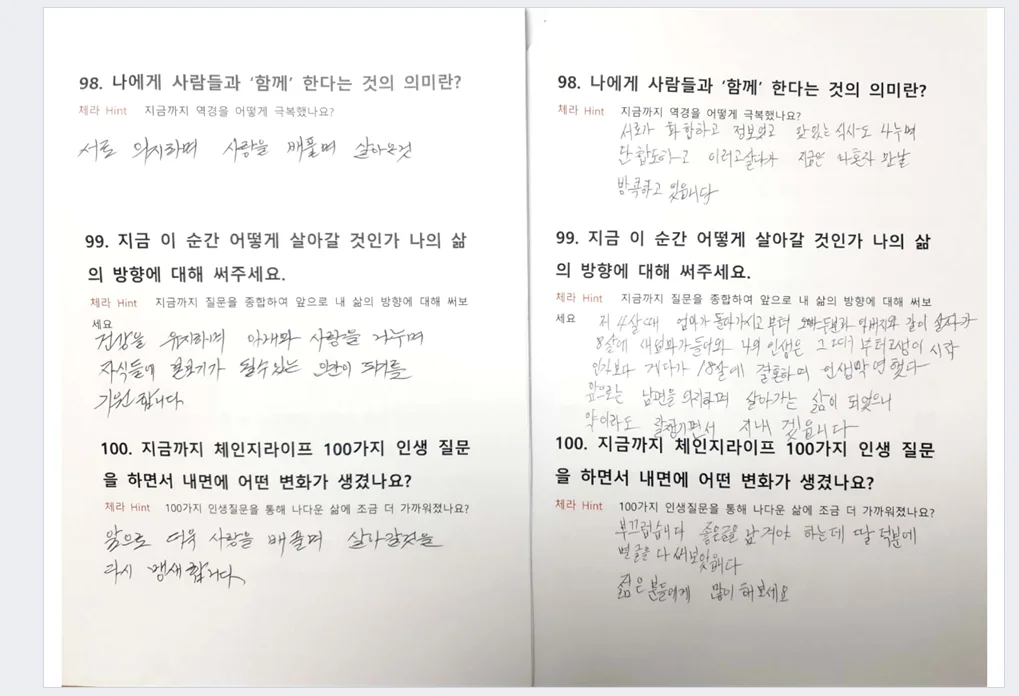 98. 나에게 사람들과 ‘함께’ 한다는 것의 의미란?
체라 Hint 지금까지 역경을 어떻게 극복했나요?
서로 의지하며 사랑을 베풀며 살아온것
99. 지금 이 순간 어떻게 살아갈 것인가 나의 삶
의 방향에 대해 써주세요.
체라 Hint 지금까지 질문을 종합하여 앞으로 내 삶의 방향에 대해 써보
세요
건강을 유지하며 아내와 사랑을 나누며
자식들에 되기를
기원 합니다
100. 지금까지 체인지라이프 100가지 인생 질문
을 하면서 내면에 어떤 변화가 생겼나요?
체라 Hint 100가지 인생질문을 통해 나다운 삶에 조금 더 가까워졌나요?
앞으로 더욱 사랑을 베풀며 살아갈것을
다시 맹세합니다
98. 나에게 사람들과 ‘함께’ 한다는 것의 의미란?
체라 Hint 지금까지 역경을 어떻게 극복했나요?
서로가 화합하고 정보얻고 맛있는 식사도 나누며
단합도하고 이러고살다가 지금은 나혼자 만날
방콕하고 있읍니다
99. 지금 이 순간 어떻게 살아갈 것인가 나의 삶
의 방향에 대해 써주세요.
체라 Hint 지금까지 질문을 종합하여 앞으로 내 삶의 방향에 대해 써보
세요
제 4살때 엄마가 돌아가시고부터 오빠두분과 아버지와 같이 살다가
8살에 새엄마가들어와 나의 인생은 그때부터고생이 시작
게다가 18살에 결혼하여 인생막연했다
앞으로는 남편을 의지하며 살아가는 삶이 되었으니
약이라도 잘챙기면서 지내 겠읍니다
100. 지금까지 체인지라이프 100가지 인생 질문
을 하면서 내면에 어떤 변화가 생겼나요?
체라 Hint 100가지 인생질문을 통해 나다운 삶에 조금 더 가까워졌나요?
부끄럽습니다 좋은글을 남겨야 하는데 딸 덕분에
별글을 다 써보았읍니다
젊은 분들에게 많이 해보세요